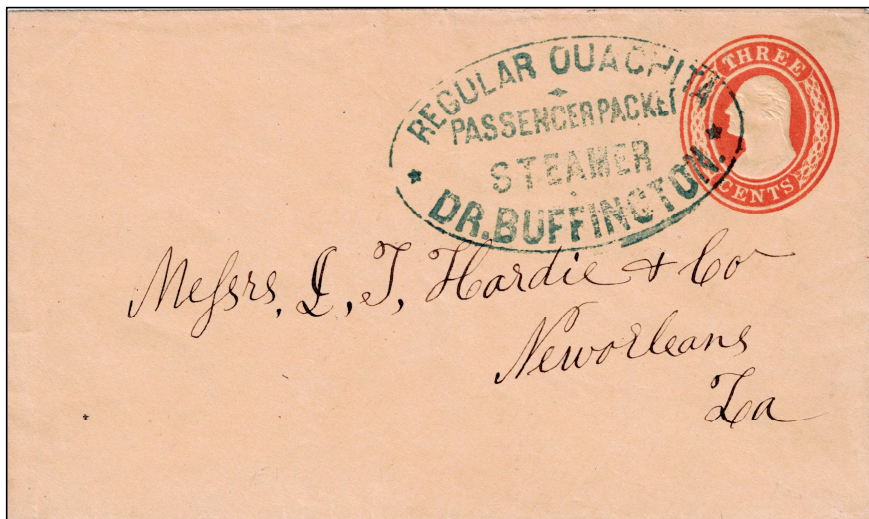 REGULAR OUACHITA
PASSENGER PACKET
STEAMER
DR. BUFFINGTON.
THREE
CENTS
Messrs, L, T, Hardie + Co
New orleans
La